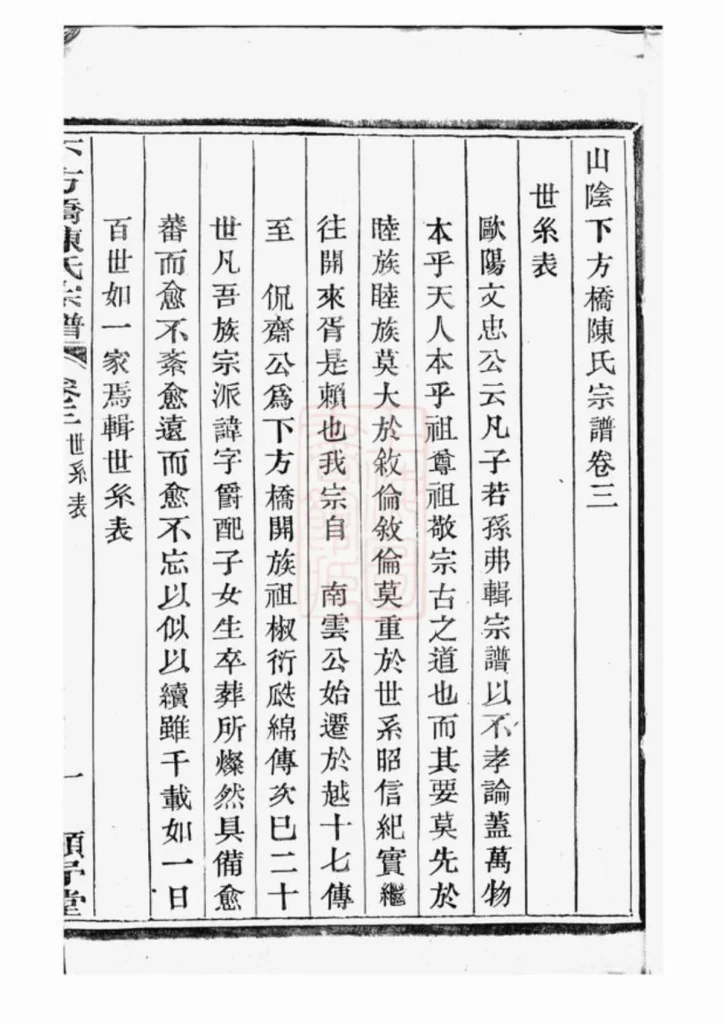 山陰下方橋陳氏宗譜卷三
世系表
歐陽文忠公云凡子若孫弗輯宗譜以不孝論蓋萬物
本乎天人本乎祖尊祖敬宗古之道也而其要莫先於
睦族睦族莫大於敘倫敘倫莫重於世系昭信紀實繼
往開來胥是賴也我宗自　南雲公始遷於越十七傳
至　侃齋公爲下方橋開族祖椒衍瓞綿傳次巳二十
世凡吾族宗派諱字爵配子女生卒葬所燦然具備愈
蕃而愈不紊愈遠而愈不忘以似以續雖千載如一日
百世如一家焉輯世系表
下方橋陳氏宗譜　卷三　世系表　一